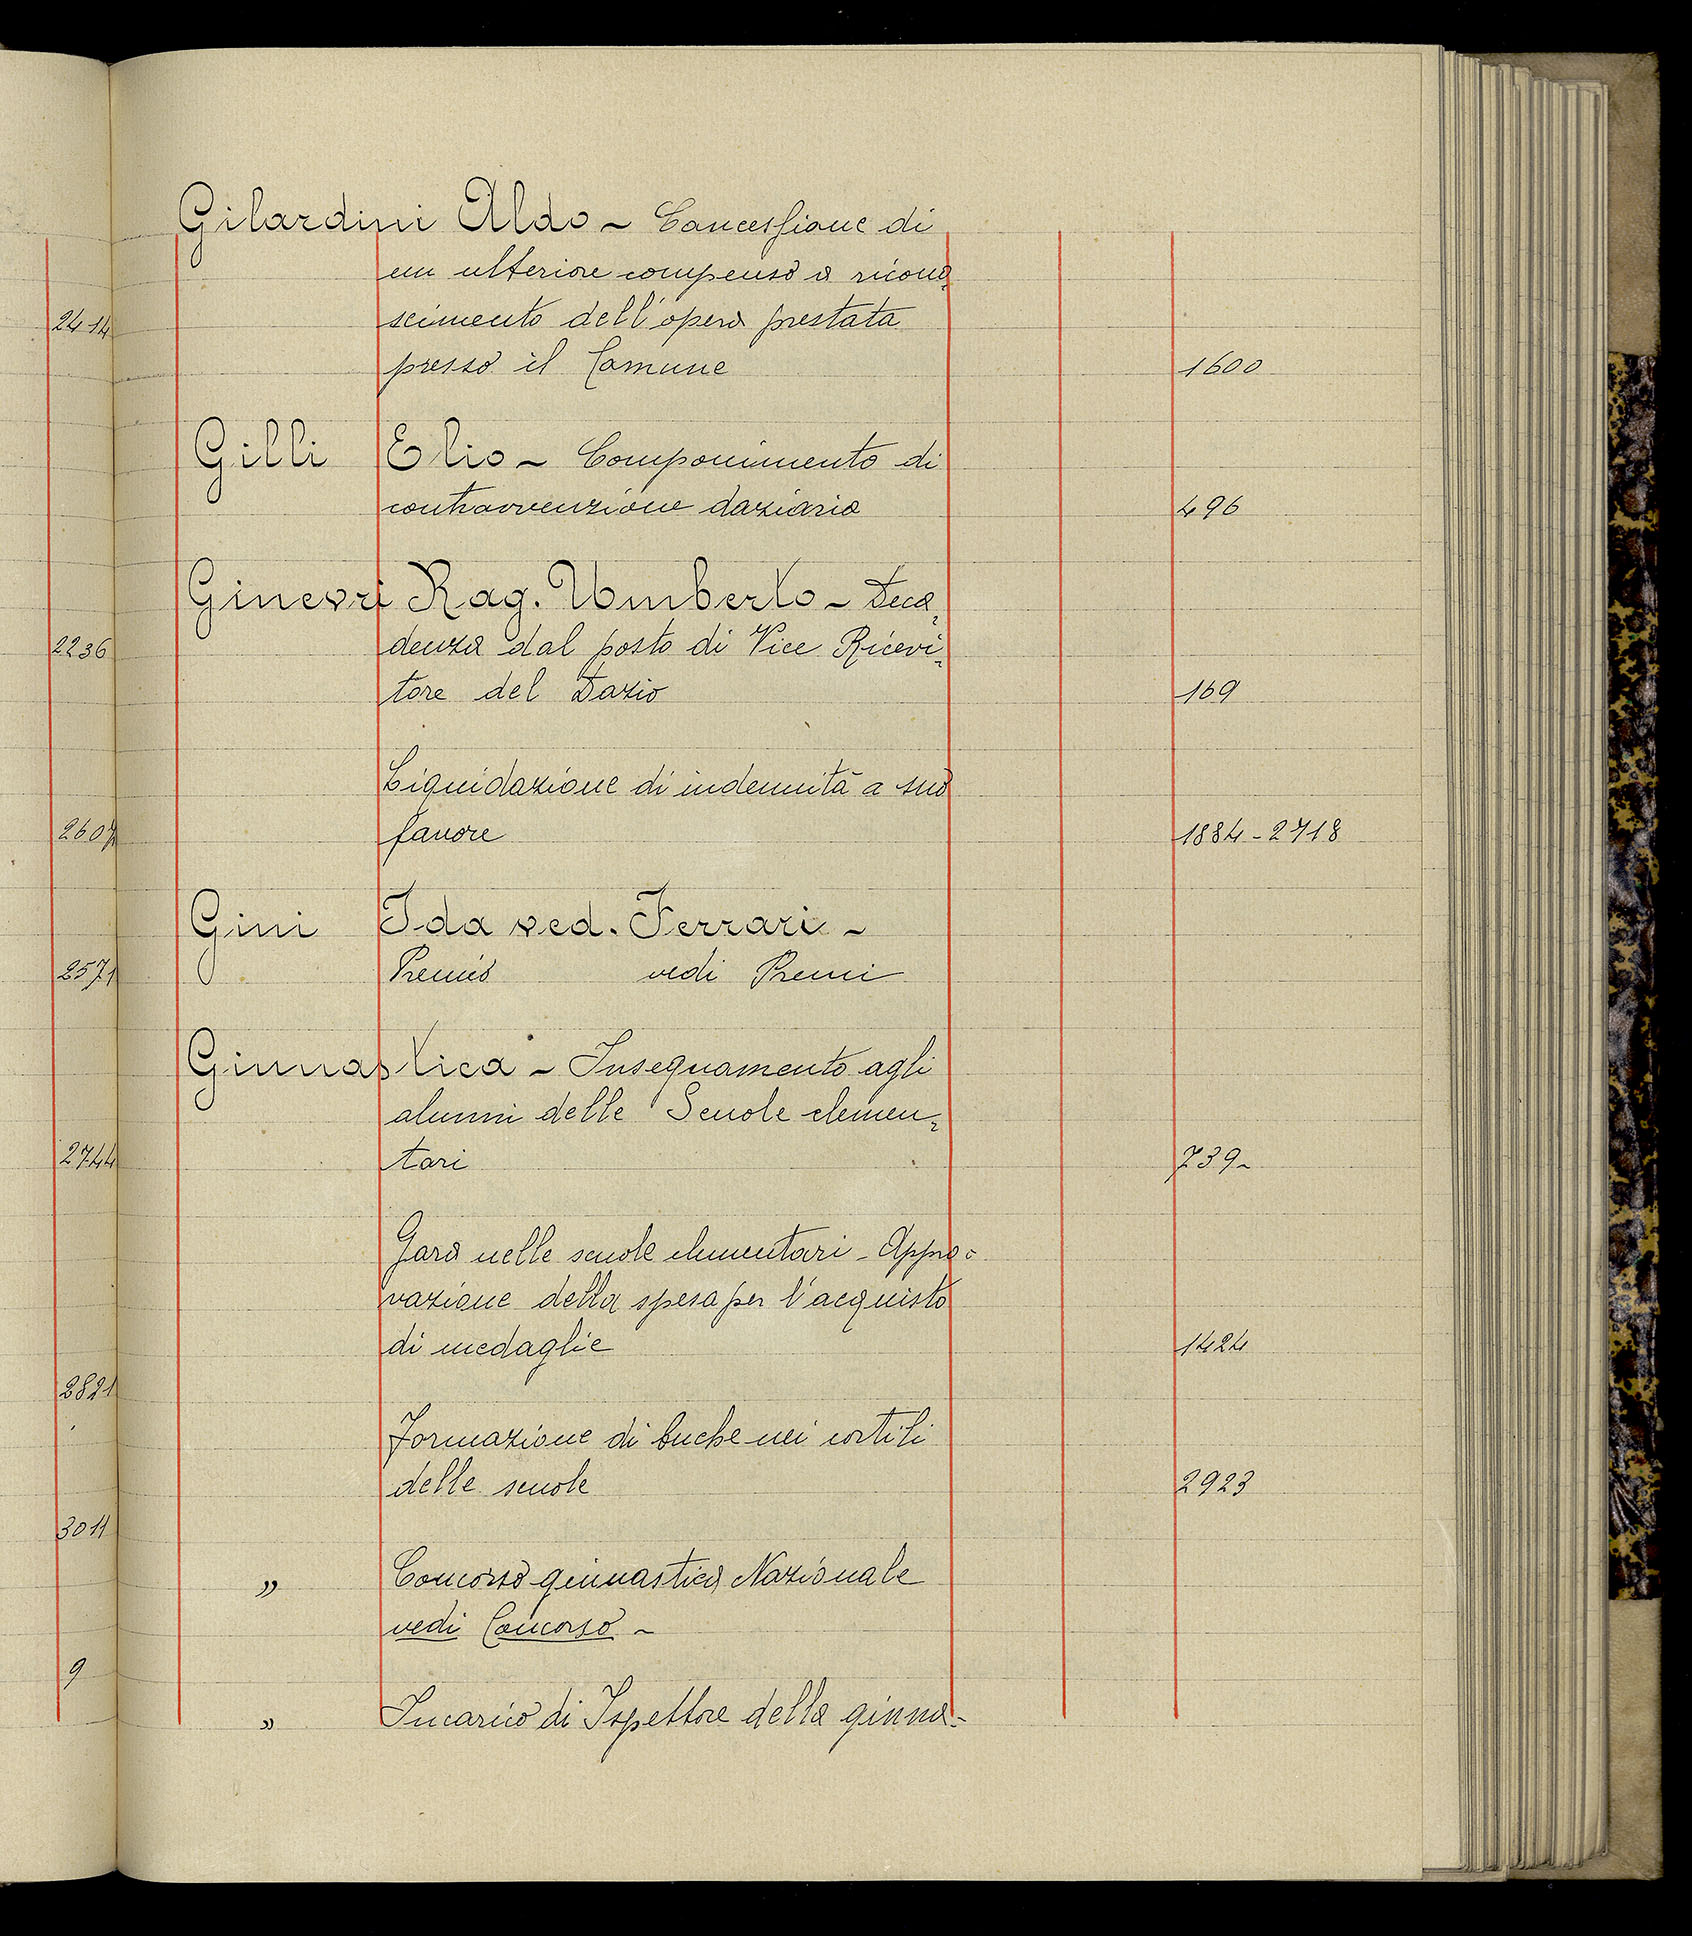 2414
2236
2607
2571
2744
2821
3011
9
Gilardini Aldo - Concessione di
un ulteriore compenso a ricono-
scimento dell'opera prestata
presso il Comune 1600
Gilli Elio - Componimento di
contravvenzione daziaria 496
Ginevri Rag. Umberto - Deca-
denza dal posto di Vice Ricevi-
tore del Dazio 169
Liquidazione di indennità a suo
favore 1884 - 2718
Gini Ida ved. Ferrari -
Premio vedi Premi
Ginnastica - Insegnamento agli
alunni delle Scuole elemen-
tari 739 -
Gara nelle scuole elementari - Appro-
vazione della spesa per l'acquisto
di medaglie 1424
Formazione di buche nei cortili
delle scuole 2923
" Concorso ginnastica Nazionale
vedi Concorso -
" Incarico di Ispettore della ginna-